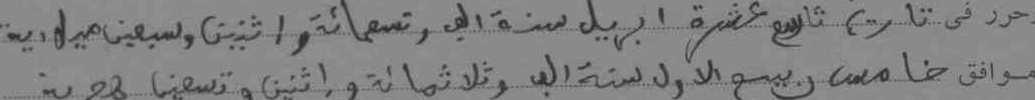 حرر فى تاريخ تاسع عشرة ابريل سنة الف وتسعمائة واثنين وسبعين ميلادية
موافق خامس ربيع الاول سنة الف وثلاثمائة واثنين وتسعين هجرية